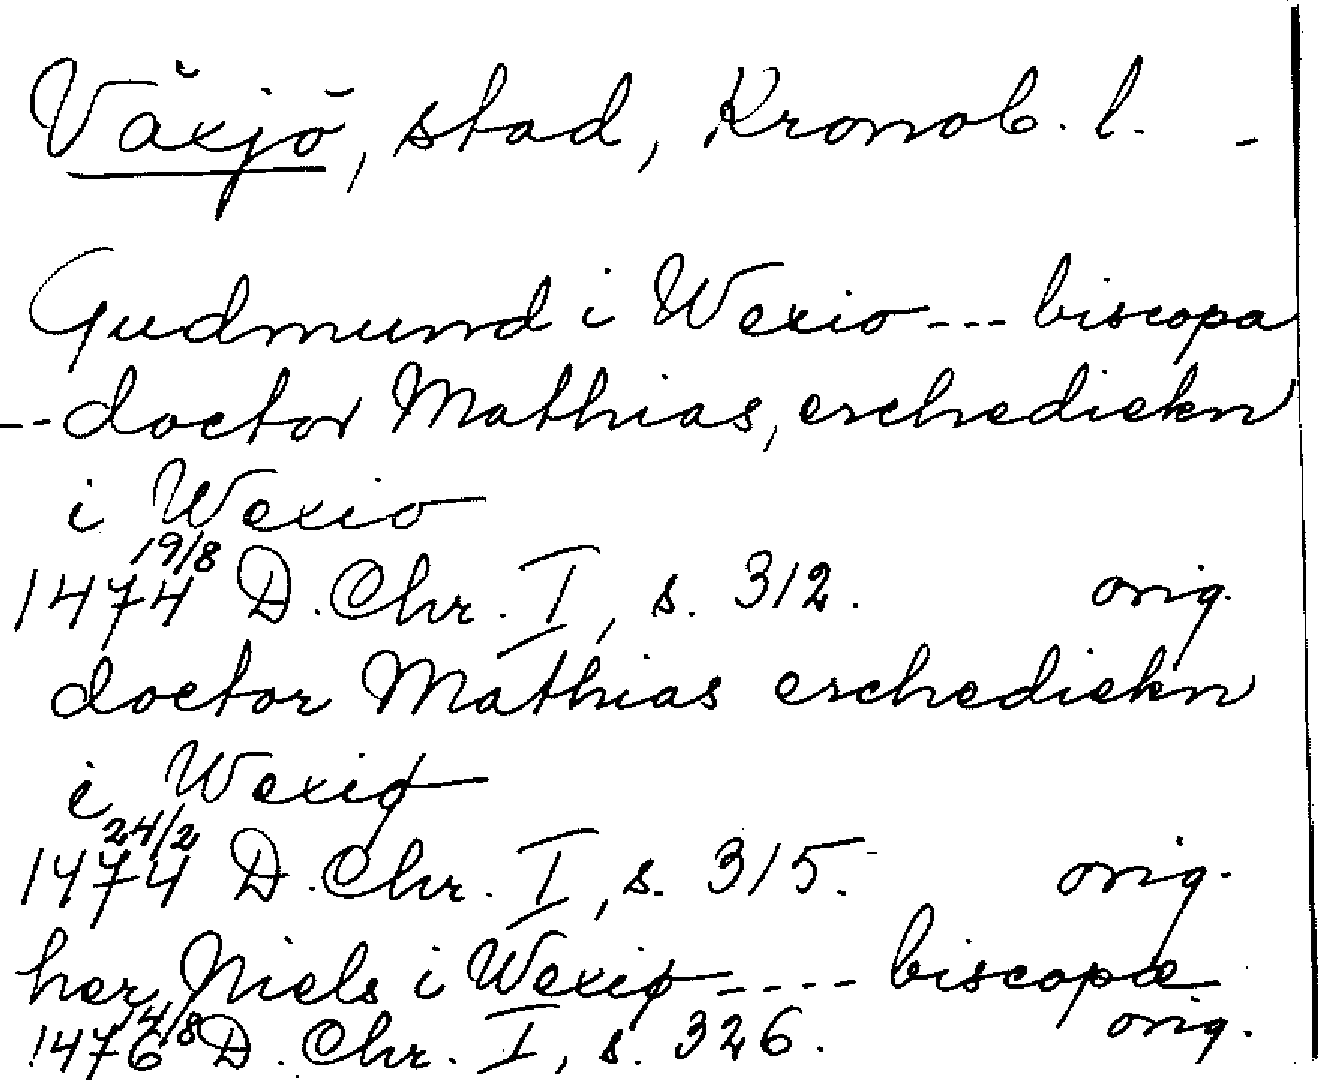 Växjö, stad, Kronob. l. -
Gudmund i Wexio --- biscopa
-- doctor Mathias, erchediekn
i Wexio
19/8
1474 D. Chr. I, s. 312. orig.
doctor Mathias erchediekn
i Wexiø
24/2
1474 D. Chr. I, s. 315. orig.
her Niels i Wexiø ---- biscopæ
14/8
1476 D. Chr. I, s. 326. orig.